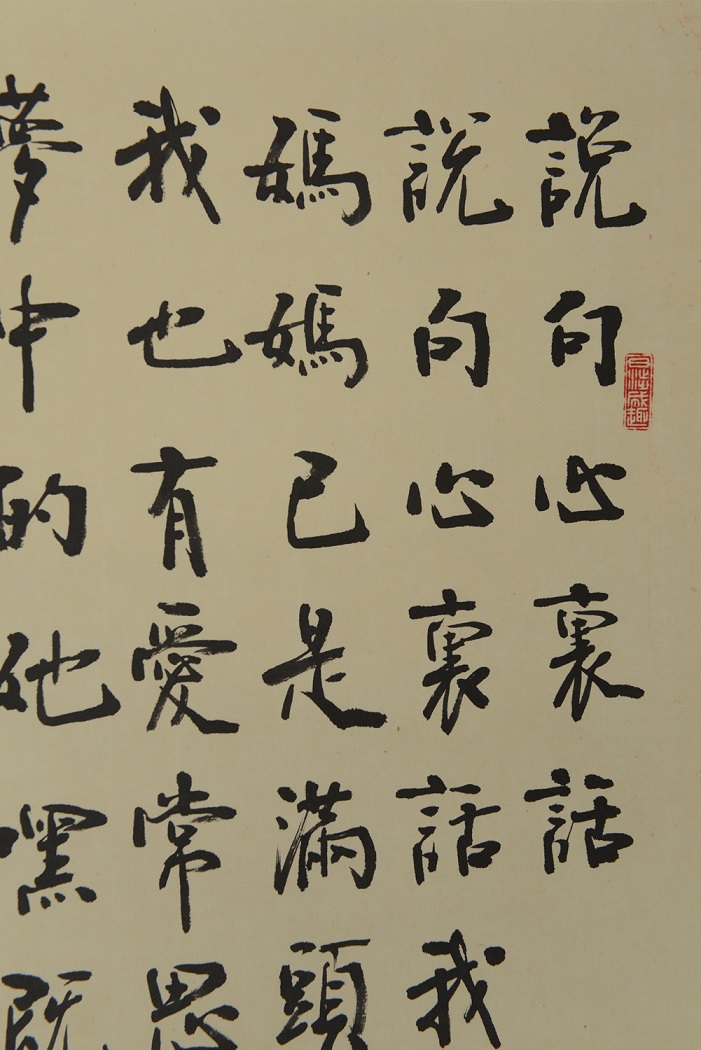 說句心裏話
說句心裏話我
媽媽已是滿頭
我也有愛常思
夢中的她嘿既